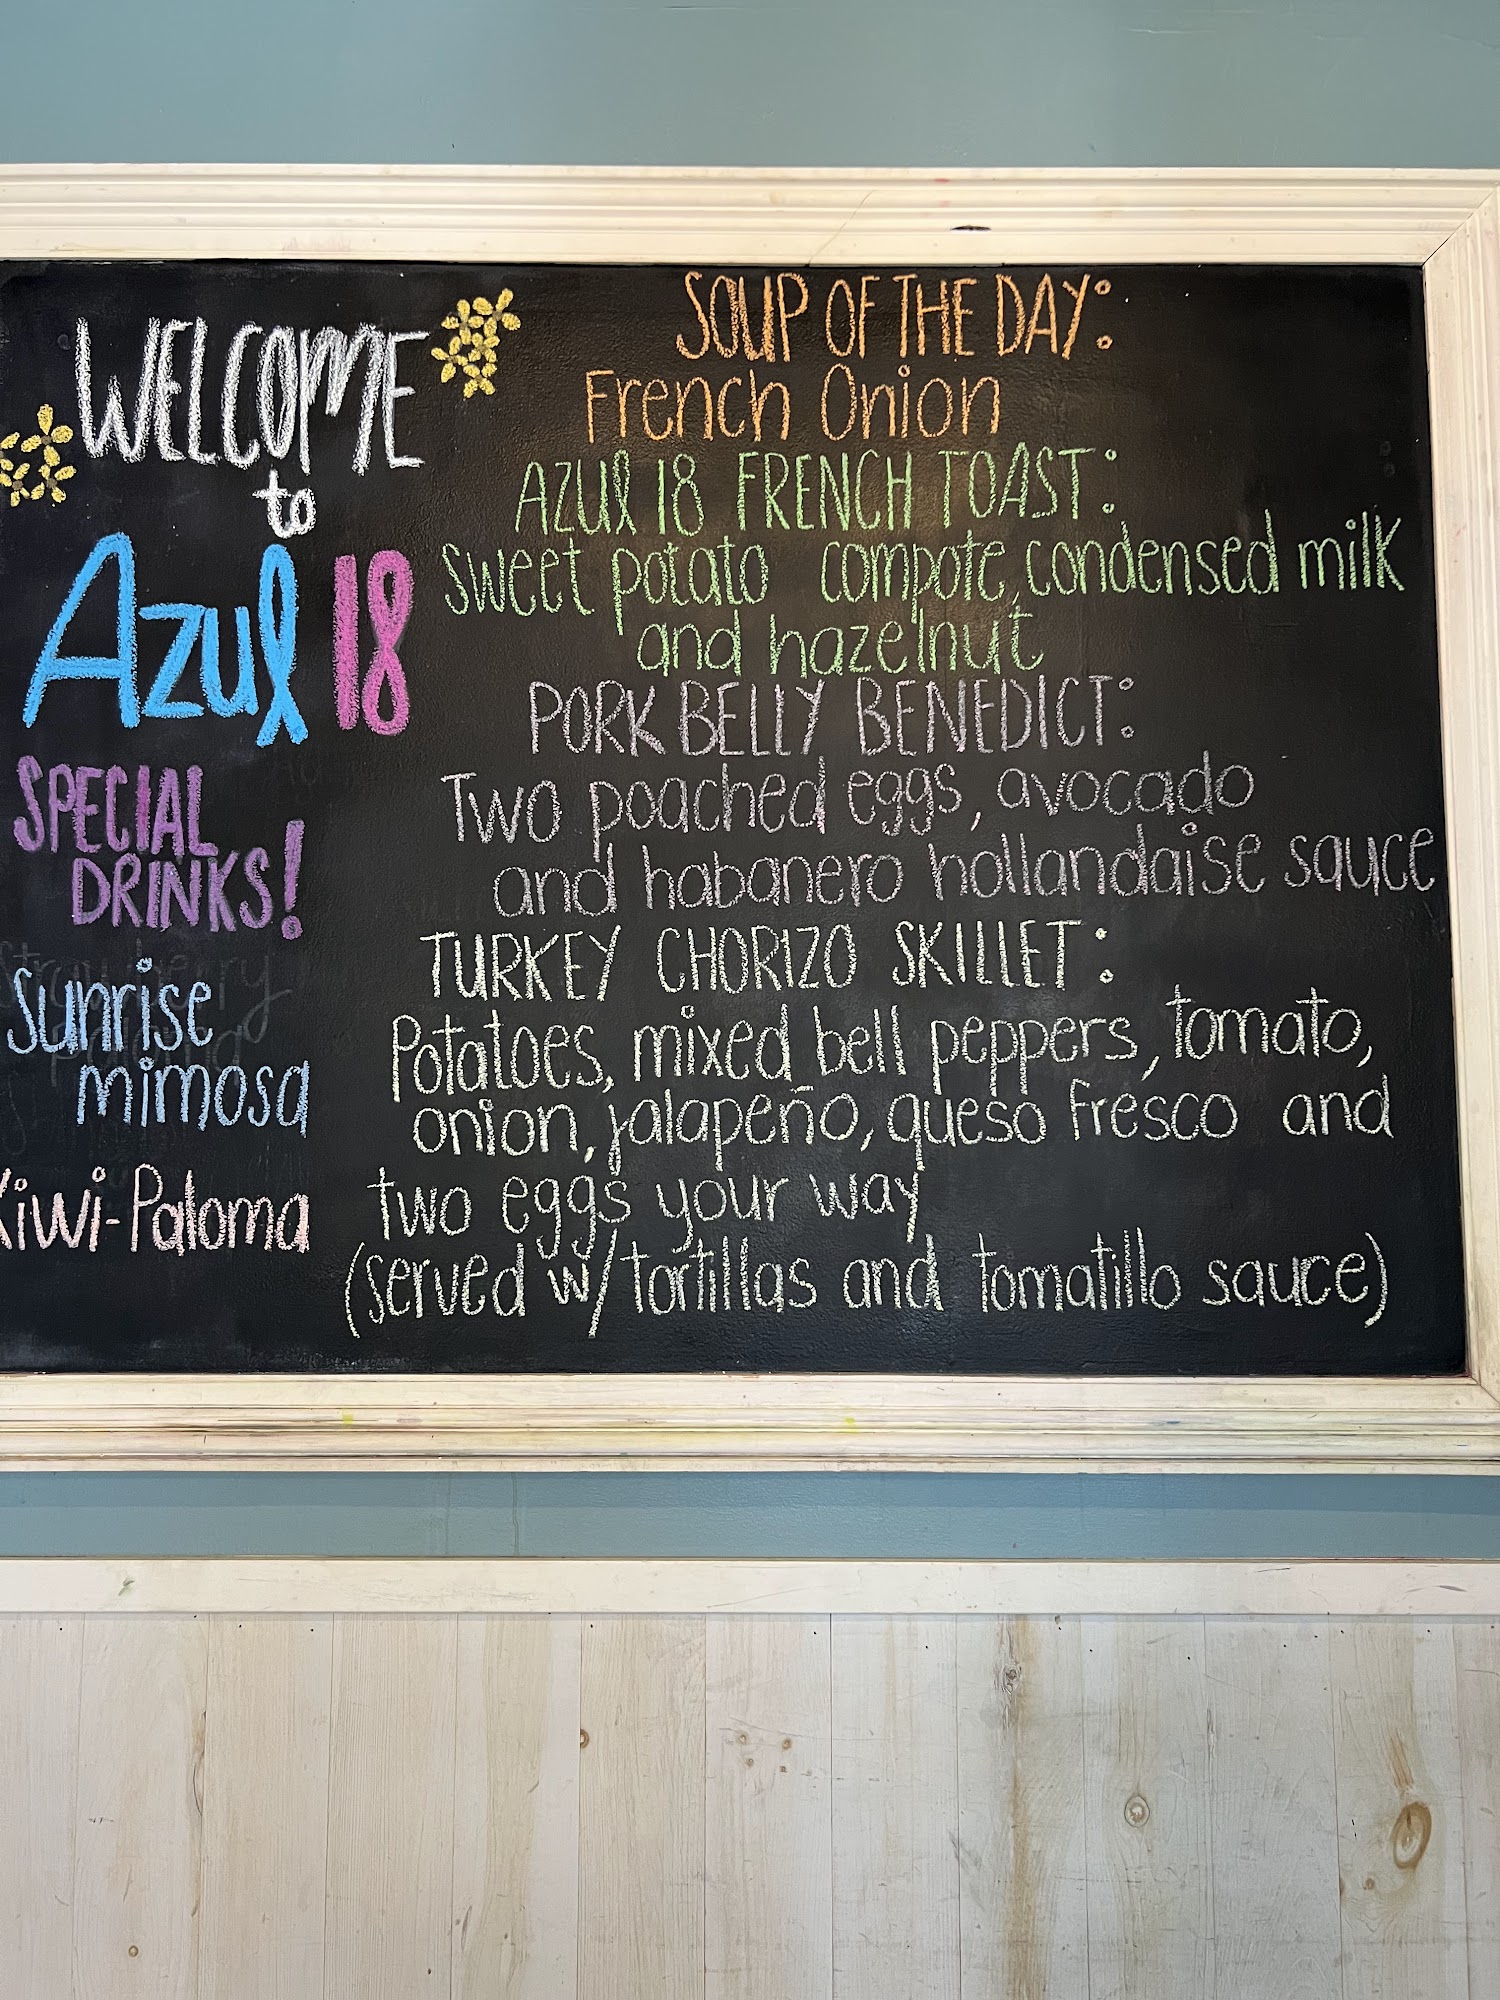 WELCOME
to
Azul 18
SPECIAL
DRINKS!
Sunrise
mimosa
Kiwi-Paloma
SOUP OF THE DAY:
French Onion
AZUl 18 FRENCH TOAST:
sweet potato compote, condensed milk
and hazelnut
PORK BELLY BENEDICT:
Two poached eggs, avocado
and habanero hollandaise sauce
TURKEY CHORIZO SKILLET:
Potatoes, mixed bell peppers, tomato,
onion, jalapeño, queso fresco and
two eggs your way
(served w/ tortillas and tomatillo sauce)